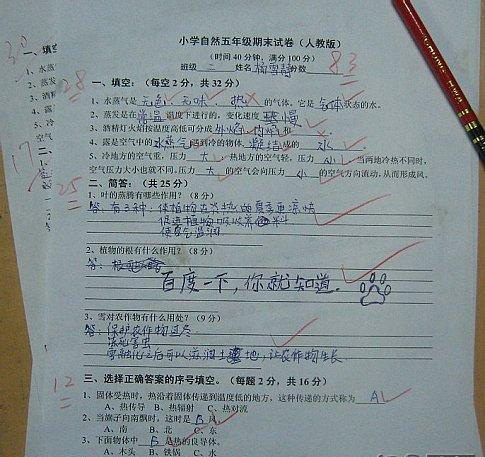 小学自然五年级期末试卷（人教版）
（时间40分钟，满分100分）
班级 三 姓名 分数 83
一、填空：（每空2分，共32分）
28
1、水蒸气是无色、无味、热的气体，它是气体状态的水。
2、蒸发是在常温温度下进行的，变化速度慢
3、酒精灯火焰按温度高低可分成外焰、内焰和
4、露是空气中的水蒸气遇到冷的物体，凝结成的水
5、冷地方的空气重，压力大，热地方的空气轻，压力小。当两地冷热不同时，
空气压力大小也就不同。压力大的空气会向压力小的空气方向流动，从而形成风。
二、简答：（共25分）
25
1、叶的蒸腾有哪些作用？（8分）
答：有三种：保植物在炎热的夏季更凉快
促进植物吸收养料
使空气湿润
2、植物的根有什么作用？（8分）
答：
百度一下，你就知道.
3、雪对农作物有什么用处？（9分）
答：保护农作物过冬
冻死害虫
雪融化之后可以滋润土地，让农作物生长
三、选择正确答案的序号填空。（每题2分，共16分）
12
1、固体受热时，热沿着固体传递到温度低的地方，这种传递的方式称为 A
A、热传导 B、热辐射 C、热对流
2、当旗子向南飘时，这时是 B 风
A、南 B、北 C、东
3、下面物体中 B 是热的良导体。
A、木头 B、铁锅 C、水